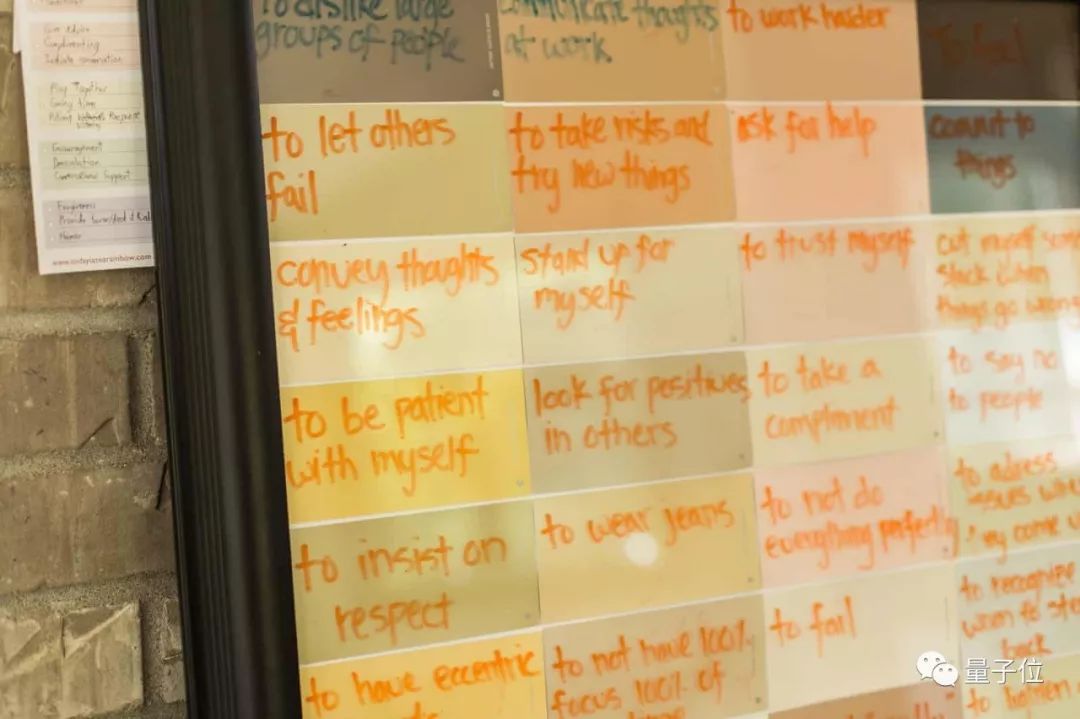 Compliment
Initiate conversation
Play Together
Giving time
Encouragement
Consolation
Forgiveness
Humor
to dislike large
groups of people
communicate thoughts
at work
to work harder
to feel
to let others
fail
to take risks and
try new things
ask for help
commit to
things
convey thoughts
& feelings
stand up for
myself
to trust myself
cut myself some
slack when
things go wrong
to be patient
with myself
look for positives
in others
to take a
compliment
to say no
to people
to insist on
respect
to wear jeans
to not do
everything perfectly
to adress
issues
come
to have eccentric
to not have 100%
focus 100% of
to fail
to recognize
back
to
量子位